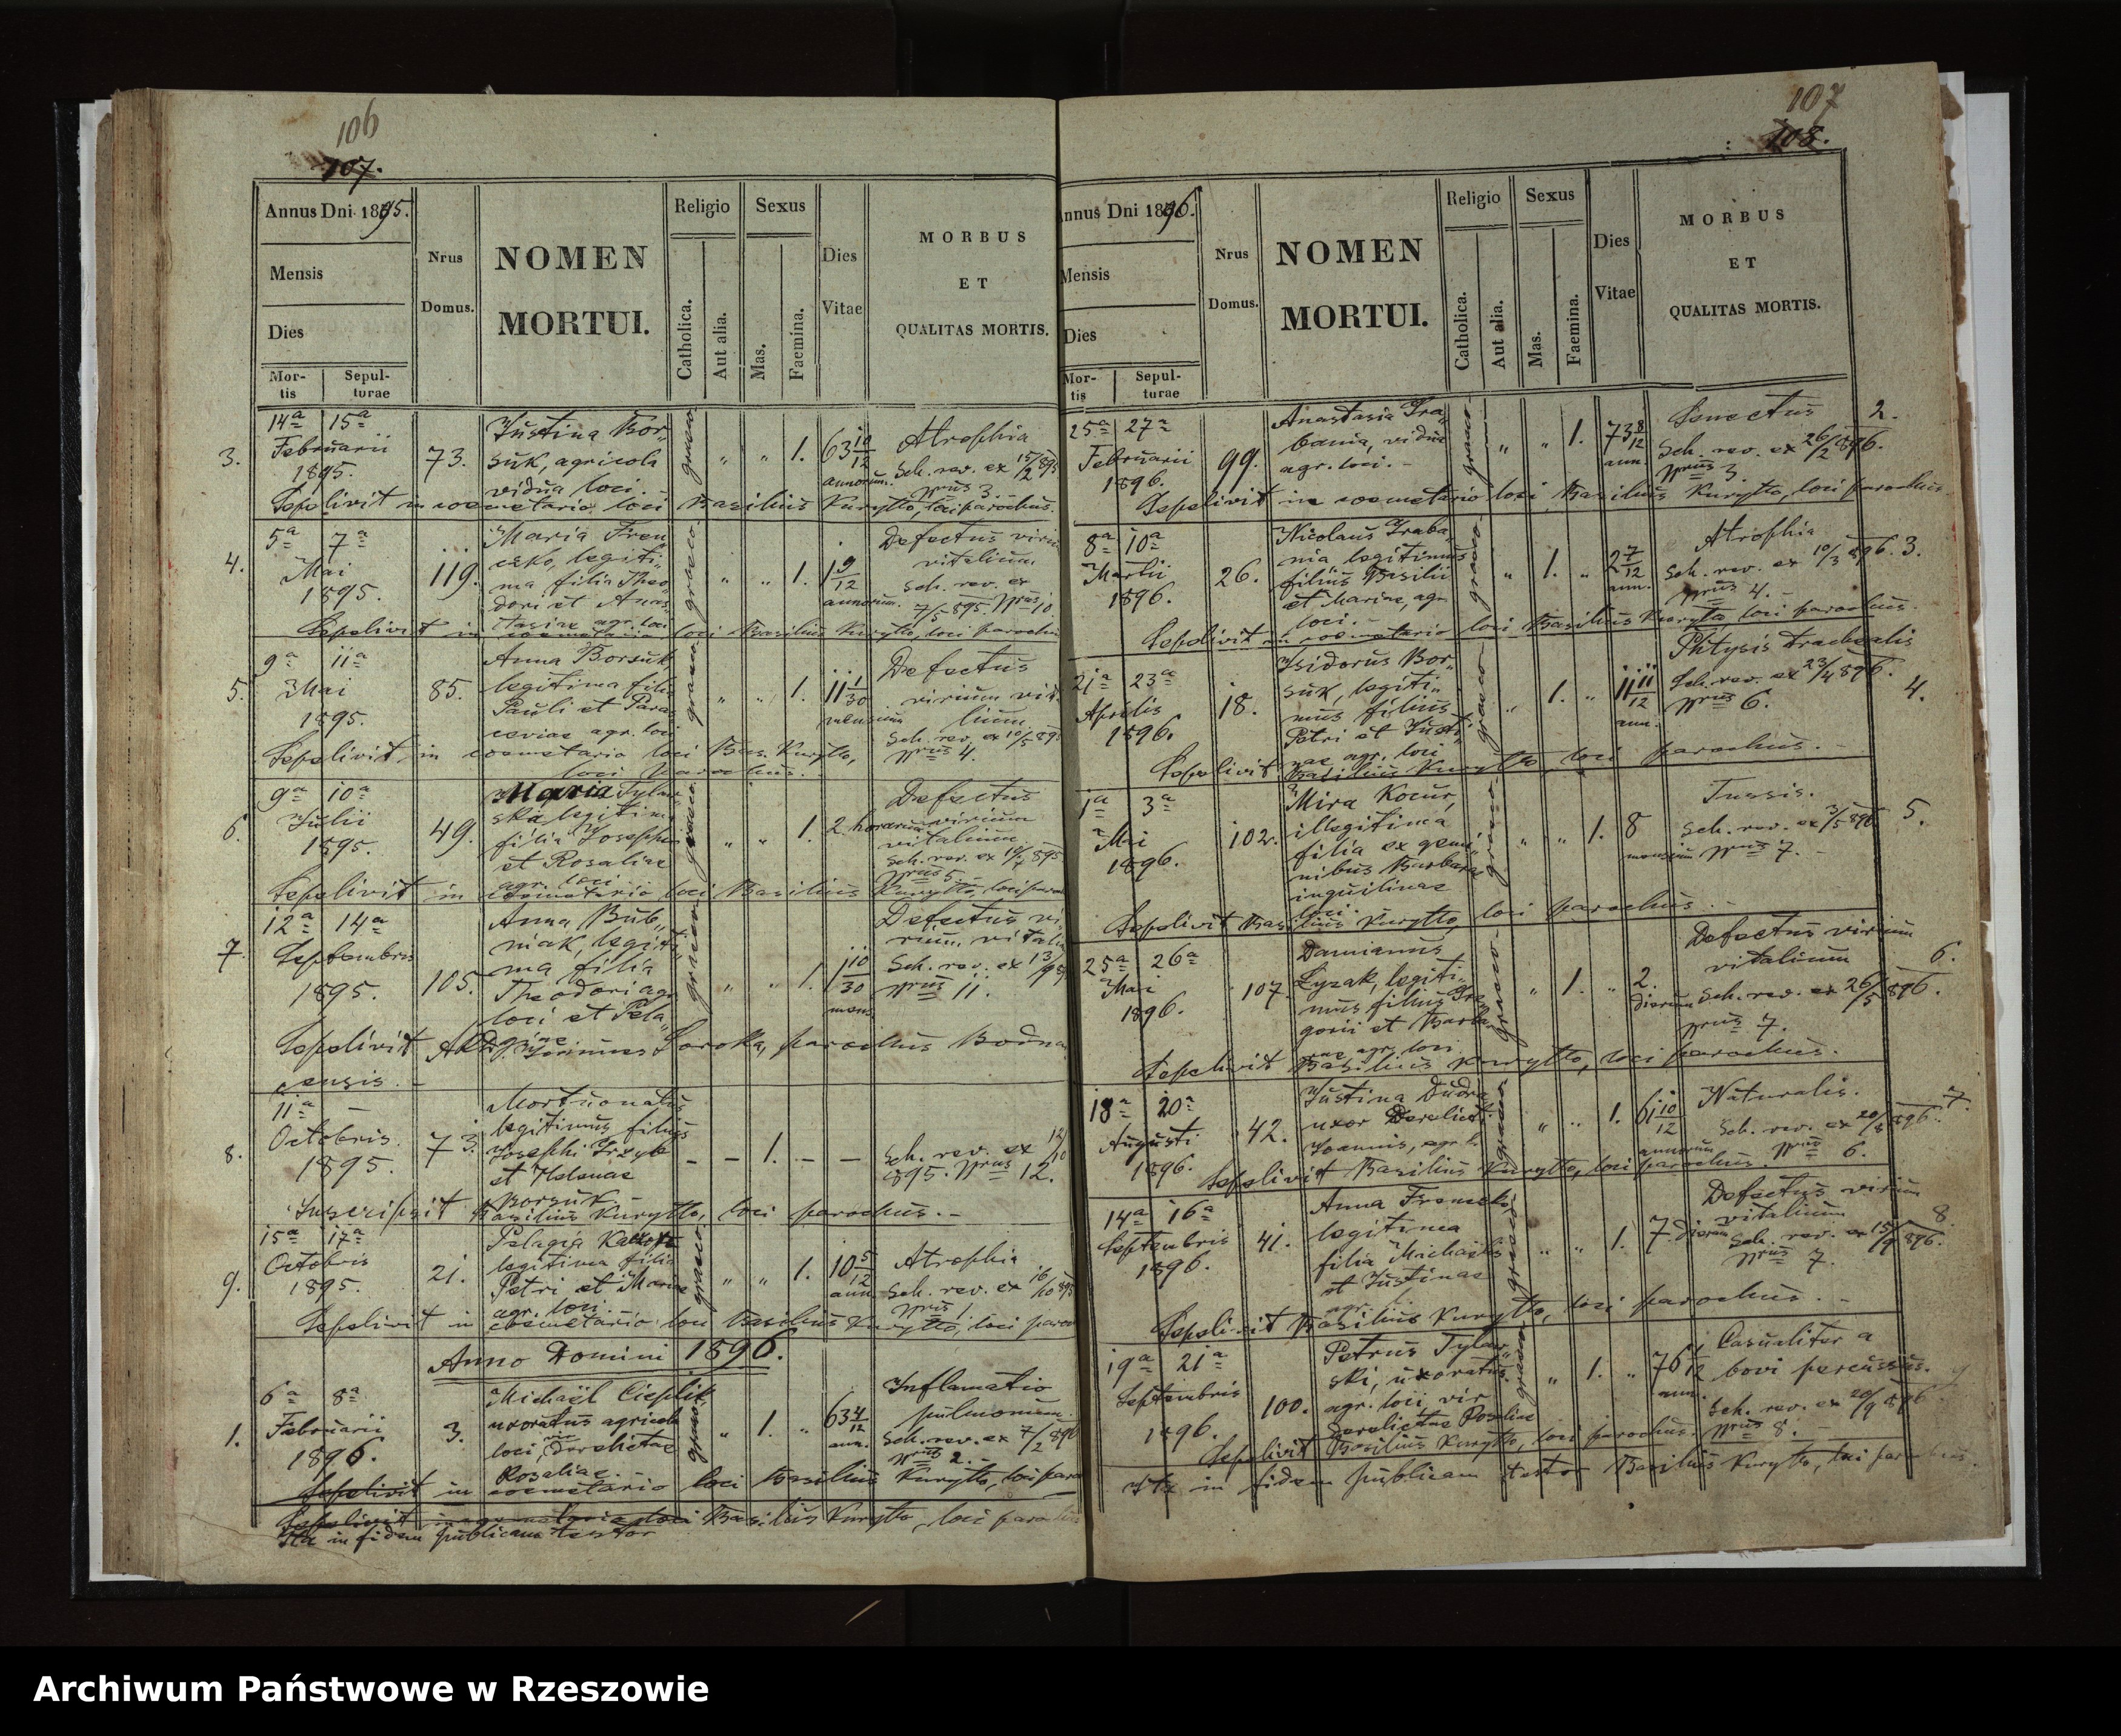 106
107.
Annus Dni 1895.
Mensis
Dies
Mor-
tis
Sepul-
turae
Nrus
Domus.
NOMEN
MORTUI.
Religio
Catholica.
Aut alia.
Sexus
Mas.
Faemina.
Dies
Vitae
MORBUS
ET
QUALITAS MORTIS.
3.
14a 15a
Februarii
1895.
73.
Justina Bor„
suk, agricola
vidua loci.
graeco
„ „ 1.
63 10/12
annorum.
Atrophia
Sch. rev. ex 15/2 895
Nrus 3.
Sepelivit in coemetario loci Basilius Kurytto, loci parochus.
4.
5a 7a
Mai
1895.
119.
Maria Fren
cko, legiti„
ma filia Theo
dori et Anas
tasiae agr. loci
„ „ 1.
1 9/12
annorum.
Defectus viriu
vitalium
Sch. rev. ex
7/5 895. Nrus 10
Sepelivit in coemetario loci Basilius Kurytto, loci parochu
5.
9a 11a
Mai
1895.
85.
Anna Borsuk
legitima filia
Pauli et Paras
ceviae agr. loci
graeco
„ „ 1.
11 1/30
mensium
Defectus
virium vita
lium
Sch. rev. ex 10/5 895
Nrus 4.
Sepelivit in coemetario loci Bas. Kurytto,
loci parochus.
6.
9a 10a
Julii
1895.
49.
Maria Tylar„
ska legitima
filia Josephi
et Rosaliae
agr. loci
„ „ 1.
2 horarum
Defectus
virium
vitalium
Sch. rev. ex 10/7 895
Nrus 5.
Sepelivit in coemetario loci Basilius Kurytto, loci paro
7.
12a 14a
Septembris
1895.
105.
Anna Bub„
niak, legiti„
ma filia
Theodori agr
loci et Pela„
giae
graeco
„ „ 1.
1 10/30
mens.
Defectus vi„
rium vitaliu
Sch. rev. ex 13/9 95
Nrus 11.
Sepelivit Soroka, parochus Bodna
censis.
8.
11a –
Octobris
1895.
73.
Mortuonatus
legitimus filius
Josephi Grzyb
et Helenae
Borsuk.
– – 1. – –
Sch. rev. ex 12/10
895. Nrus 12.
Inscripsit Basilius Kurytto, loci parochus.
9.
15a 17a
Octobris
1895.
21.
Pelagia
legitima filia
Petri et Mariae
agr. loci.
graeco
„ „ 1.
10 5/12
ann.
Atrophia
Sch. rev. ex 16/10 895
Nrus 1.
Sepelivit in coemetario loci Basilius Kurytto, loci paroc
Anno Domini 1896.
1.
6a 8a
Februarii
1896.
3.
Michaël Cieplik
uxoratus agricola
loci, vir derelictae
Rosaliae.
graeco
„ 1. „
63 4/12
ann.
Inflamatio
pulmonum.
Sch. rev. ex 7/2 896
Nrus 2.
Sepelivit in coemetario loci Basilius Kurytto, loci paro
Basilius Kurytto, loci parochus
Ita in fidem publicam testor
107
108.
Annus Dni 1896.
Mensis
Dies
Mor-
tis
Sepul-
turae
Nrus
Domus.
NOMEN
MORTUI.
Religio
Catholica.
Aut alia.
Sexus
Mas.
Faemina.
Dies
Vitae
MORBUS
ET
QUALITAS MORTIS.
25a 27a
Februarii
1896.
99.
Anastasia Gra„
bania, vidua
agr. loci.
graeco
„ „ 1.
73 8/12
ann.
Senectus
Sch. rev. ex 26/2 896.
Nrus 3.
2.
Sepelivit in coemetario loci Basilius Kurytto, loci parochus
8a 10a
Martii
1896.
26.
Nicolaus Graba„
nia legitimus
filius Basilii
et Mariae, agr.
loci.
graeco
„ 1. „
2 7/12
ann.
Atrophia
Sch. rev. ex 10/3 896.
Nrus 4.
3.
Sepelivit in coemetario loci Basilius Kurytto, loci parochus.
21a 23a
Aprilis
1896.
18.
Isidorus Bor„
suk, legiti„
mus filius
Petri et Justi„
nae agr. loci
graeco
„ 1. „
11 11/12
ann.
Phtysis trachealis
Sch. rev. ex 23/4 896.
Nrus 6.
4.
Sepelivit Basilius Kurytto, loci parochus.
1a 3a
Mai
1896.
102.
Mira Kocur,
illegitima
filia ex gemi„
nibus Barbarae
inquilinae
loci.
„ „ 1.
8
mensium
Tussis.
Sch. rev. ex 3/5 896
Nrus 7.
5.
Sepelivit Basilius Kurytto, loci parochus.
25a 26a
Mai
1896.
107.
Damianus
Łyzak, legiti„
mus filius Gre„
gorii et Barba„
rae agr. loci
graeco
„ 1. „
2.
dierum
Defectus virium
vitalium
Sch. rev. ex 26/5 896.
Nrus 7.
6.
Sepelivit Basilius Kurytto, loci parochus.
18a 20a
Augusti
1896.
42.
Justina Dudra
uxor derelicti
Joannis, agr. l.
graeco
„ „ 1.
61 10/12
annorum
Naturalis.
Sch. rev. ex 20/8 896.
Nrus 6.
7.
Sepelivit Basilius Kurytto, loci parochus.
14a 16a
Septembris
1896.
41.
Anna Frencko
legitima
filia Michaëlis
et Justinae
agr. l.
graeco
„ „ 1.
7 dierum
Defectus virium
vitalium
Sch. rev. ex 15/9 896.
Nrus 7.
8.
Sepelivit Basilius Kurytto, loci parochus.
19a 21a
Septembris
1896.
100.
Petrus Tylar„
ski, uxoratus
agr. loci, vir
derelictae Rosaliae
graeco
„ 1. „
76 1/12
ann.
Casualiter a
bovi percussus.
Sch. rev. ex 20/9 896
Nrus 8.
9
Sepelivit Basilius Kurytto, loci parochus.
Ita in fidem publicam testor Basilius Kurytto, loci parochus.
Archiwum Państwowe w Rzeszowie